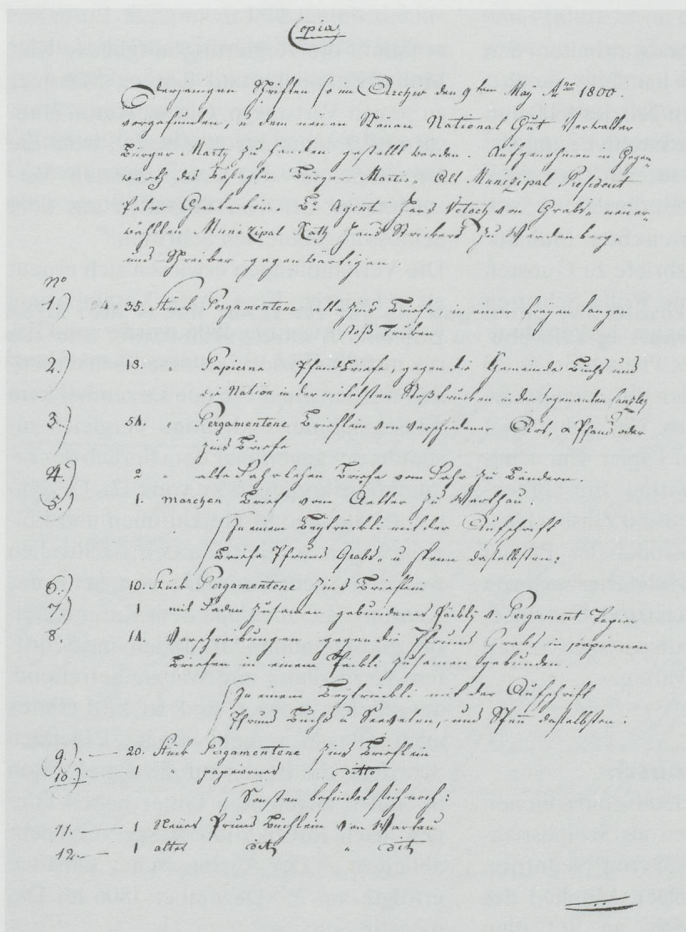 Copia
Derjenigen Schriften so im Archiv den 9ten Maj Ano 1800.
vorgefunden, u dem neuen National Gut Verwalter
Bürger Marty zu handen gestellt worden. Aufgenohmen in Gegen
warth des Bürger alt Municipal President
Peter Gantenbein. Br Agent Hans Vetsch von Grabs neuer
wählten Munizipal Rath Hans Strickers zu Werdenberg
und Schreiber gegenwärtigen.
No
1.) 35. Stück Pergamentene alte Zins Briefe, in einer langen
2.) 18. " Papierne Pfandbriefe, gegen die Gemeinde Buchs und
die Nation in der mitelsten in der sogenanten
3.) 54. Pergamentene Brieflein von verschiedener Art, Pfand oder
Zins Briefe
4.) 2 alte Briefe von zu Bendern.
5.) 1. Marchen Brief vom zu Warthau.
In einem mit der Aufschrift
Briefe Pfrund Grabs u daselbsten:
6.) 10. Stück Pergamentene Zins Brieflein
7.) 1 mit Faden zusamen gebundenes v. Pergament Papier
8. 14. Verschreibungen gegen die Pfrund Grabs in papiernen
Briefen in einem zusamen gebunden.
In einem mit der Aufschrift
Pfrund Buchs u Sevelen, und daselbsten:
9.) 20. Stück Pergamentene Zins Brieflein
10.) 1 " papiernes ditto
Sonsten befindet sich noch:
11. 1 Neues Büchlein von Wartau
12. 1 altes dito " dito